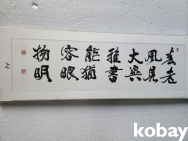 春風大雅能容物
老見異書猶眼明
kobay